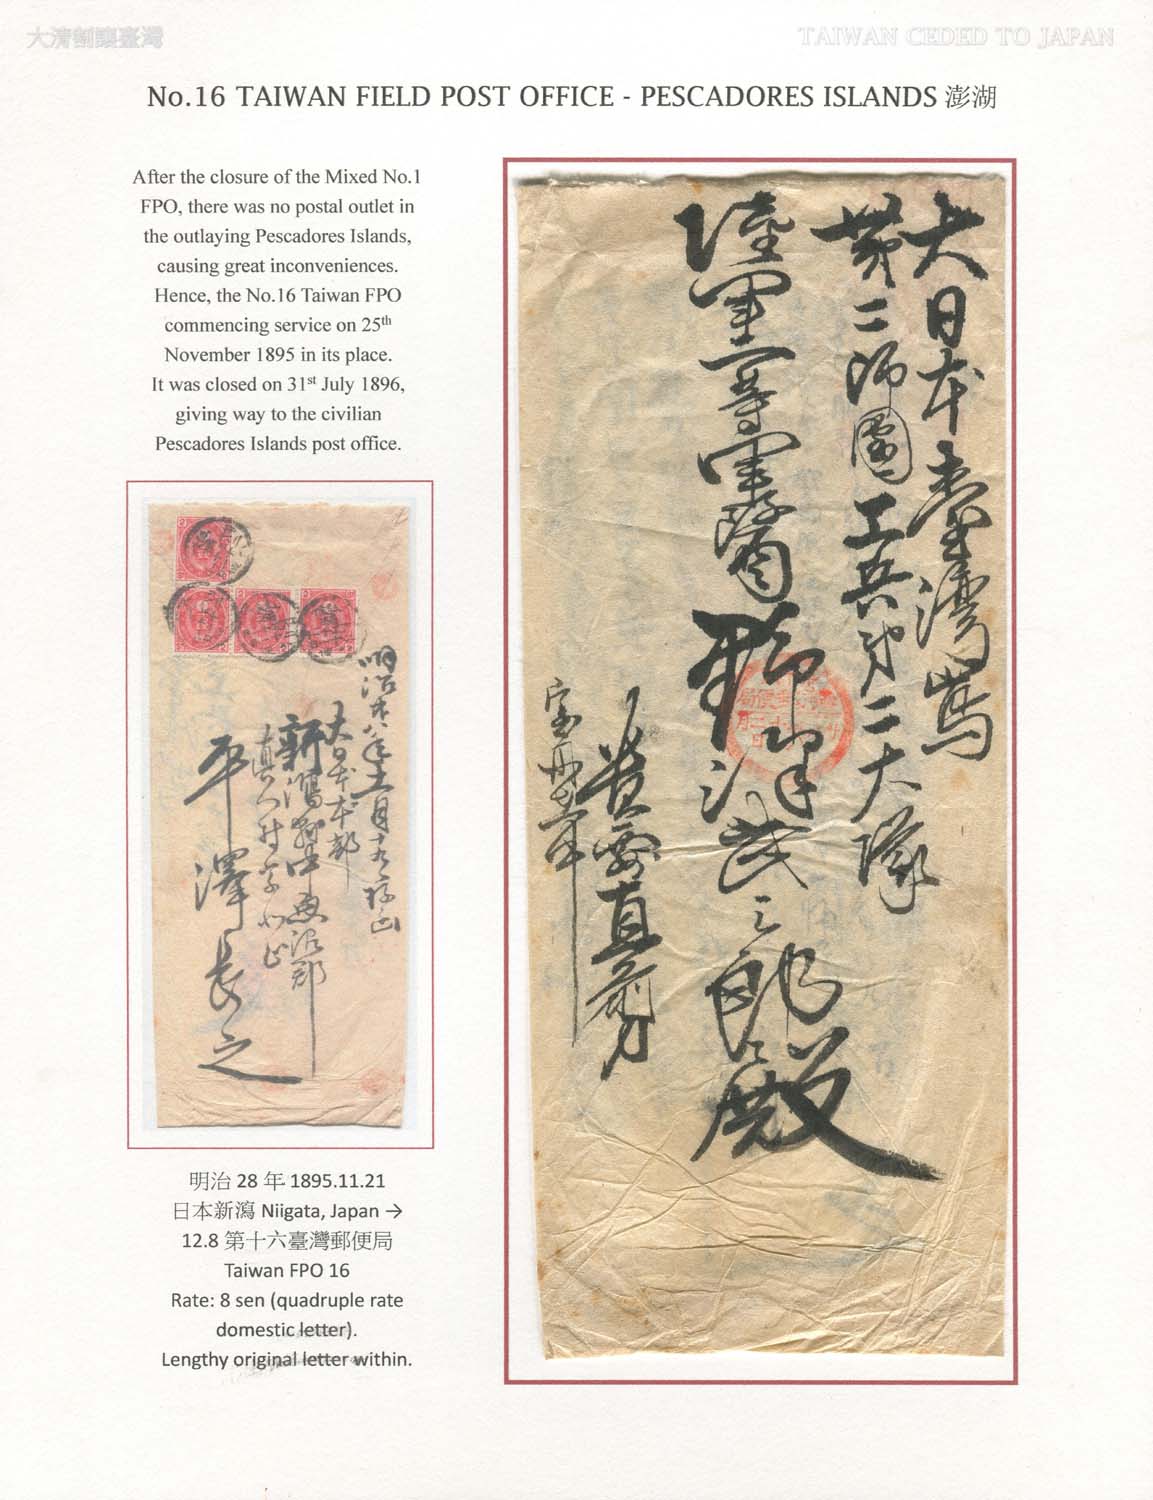 大清割讓臺灣
TAIWAN CEDED TO JAPAN
No.16 TAIWAN FIELD POST OFFICE - PESCADORES ISLANDS 澎湖
After the closure of the Mixed No.1
FPO, there was no postal outlet in
the outlaying Pescadores Islands,
causing great inconveniences.
Hence, the No.16 Taiwan FPO
commencing service on 25th
November 1895 in its place.
It was closed on 31st July 1896,
giving way to the civilian
Pescadores Islands post office.
大日本臺灣嶌
第二師團工兵第二大隊
陸軍一等軍醫
柳澤武三郎殿
直前
明治廿八年十一月十九日
大日本本部
新潟縣中魚沼郡
平澤長之
明治 28 年 1895.11.21
日本新瀉 Niigata, Japan →
12.8 第十六臺灣郵便局
Taiwan FPO 16
Rate: 8 sen (quadruple rate
domestic letter).
Lengthy original letter within.